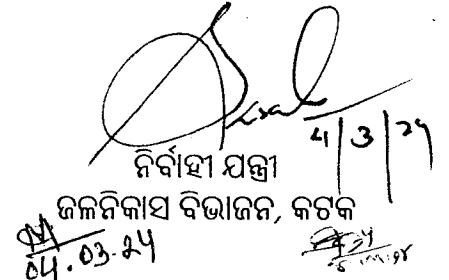 4/3/24
ନିର୍ବାହୀ ଯନ୍ତ୍ରୀ
ଜଳନିକାସ ବିଭାଜନ, କଟକ
04.03.24